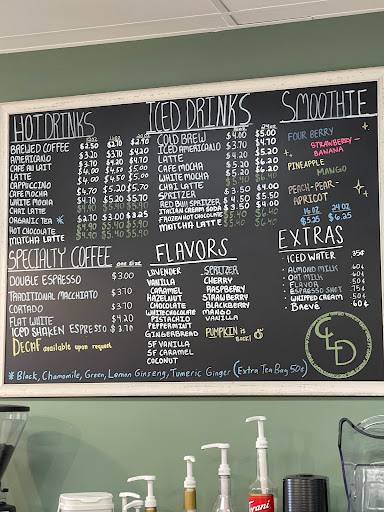 HOT DRINKS
12oz 16oz 20oz
BREWED COFFEE $2.50 $2.70 $2.90
AMERICANO $3.20 $3.70 $4.20
CAFE AU LAIT $3.70 $4.20 $4.70
LATTE $4.00 $4.50 $5.00
CAPPUCCINO
CAFE MOCHA $4.70 $5.20 $5.70
WHITE MOCHA
CHAI LATTE
ORGANIC TEA * $2.70 $3.00 $3.25
HOT CHOCOLATE
MATCHA LATTE
ICED DRINKS
24oz
COLD BREW $4.00 $5.00
ICED AMERICANO $3.70 $4.70
LATTE $4.20 $5.20
CAFE MOCHA $5.20 $6.20
WHITE MOCHA $5.20 $6.20
CHAI LATTE
SPRITZER $3.50 $4.00
RED BULL SPRITZER
ITALIAN CREAM SODA
FROZEN HOT CHOCOLATE $5.40 $6.40
MATCHA LATTE $5.40 $6.40
SMOOTHIE
FOUR BERRY
STRAWBERRY-
BANANA
PINEAPPLE
MANGO
PEACH-PEAR-
APRICOT
16oz 24oz
$5.25 $6.25
SPECIALTY COFFEE ONE SIZE
DOUBLE ESPRESSO $3.00
TRADITIONAL MACCHIATO $3.70
CORTADO $3.70
FLAT WHITE $4.20
ICED SHAKEN ESPRESSO $3.70
DECAF available upon request
FLAVORS
LAVENDER
VANILLA
CARAMEL
HAZELNUT
CHOCOLATE
WHITE CHOCOLATE
PISTACHIO
PEPPERMINT
GINGERBREAD
SF VANILLA
SF CARAMEL
COCONUT
SPRITZER
CHERRY
RASPBERRY
STRAWBERRY
BLACKBERRY
MANGO
VANILLA
PUMPKIN is
BACK!
EXTRAS
· ICED WATER .35¢
· ALMOND MILK 60¢
· OAT MILK 60¢
· FLAVOR 50¢
· ESPRESSO SHOT 75¢
· WHIPPED CREAM 50¢
· BREVÉ 60¢
CLD
* Black, Chamomile, Green, Lemon Ginseng, Tumeric Ginger (Extra Tea Bag 50¢)
Torani